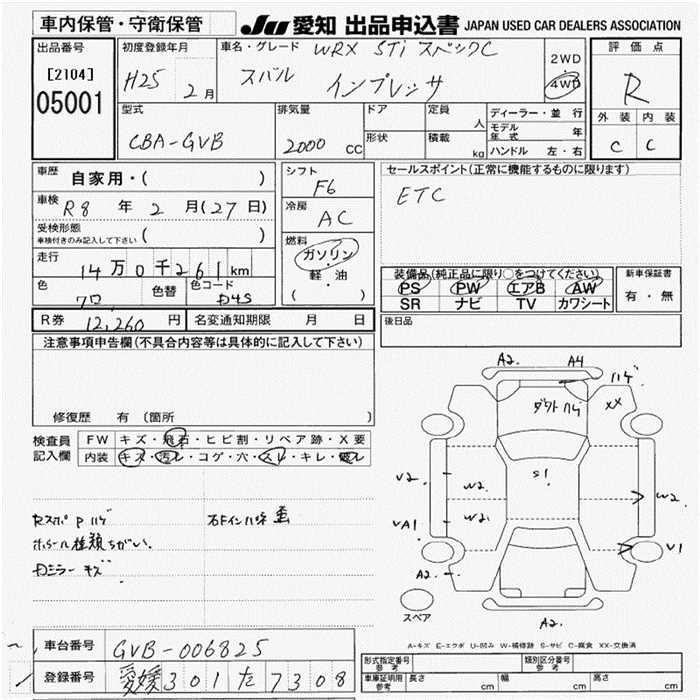 車内保管・守衛保管
JU 愛知 出品申込書 JAPAN USED CAR DEALERS ASSOCIATION
出品番号
[2104]
05001
初度登録年月
H25 2月
車名・グレード WRX STi スペックC
スバル インプレッサ
2WD
4WD
評価点
R
外装 内装
C C
型式
CBA-GVB
排気量
2000 CC
ドア
形状
定員
人
積載
kg
ディーラー・並行
モデル年式 年
ハンドル 左・右
車歴 自家用・( )
車検 R8 年 2 月(27日)
受検形態
車検付きのみ記入して下さい ( )
走行
14万0千261km
色 色替 色コード
クロ D4S
シフト
F6
冷房
AC
燃料
ガソリン
軽・油
( )
セールスポイント(正常に機能するものに限ります)
ETC
装備品(純正品に限り○をつけてください)
PS PW エアB AW
SR ナビ TV カワシート
新車保証書
有・無
R券 12,260 円 名変通知期限 月 日
後日品
注意事項申告欄(不具合内容等は具体的に記入して下さい)
修復歴 有 〔箇所 〕
検査員記入欄
FW キズ・飛石・ヒビ割・リペア跡・X要
内装 キズ・汚レ・コゲ・穴・スレ・キレ・破レ
RスポP ハゲ
ホイール種類ちがい
Dミラー キズ
A2. A4 ハゲ
ダクトハゲ XX
V2 W2. S1 W2
VA1 W2. V1
A2. A2.
スペア
A-キズ E-エクボ U-凹み W-補修跡 S-サビ C-腐食 XX-交換済
車台番号 GVB-006825
登録番号 愛媛 301 た 7308
形式指定番号
参考
類別区分番号
参考
車庫証明用
参考
長さ cm 幅 cm 高さ cm